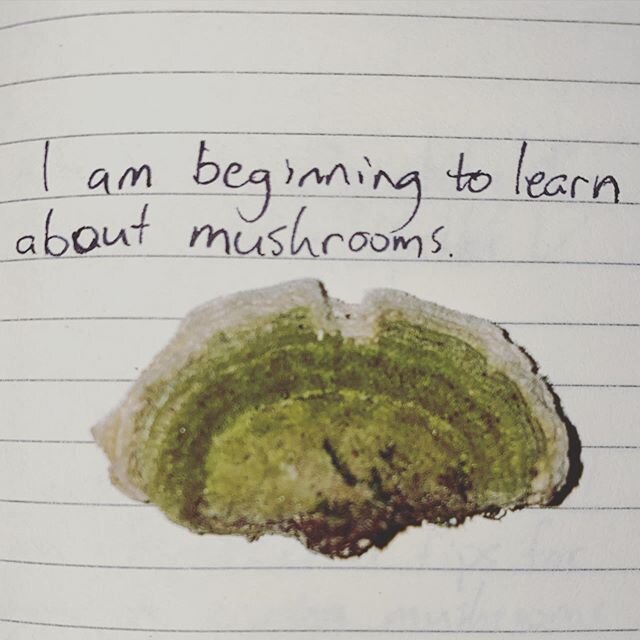 I am beginning to learn
about mushrooms.